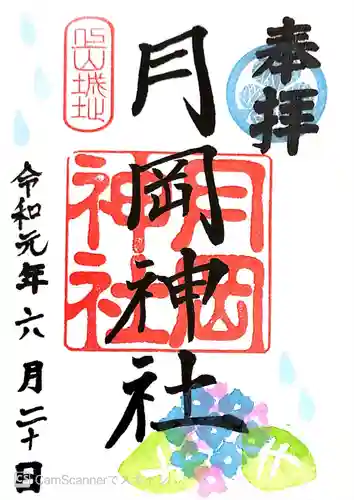 奉拝
月岡神社
月岡
神社
上山城址
令和元年六月二十日
CS CamScannerでスキャン